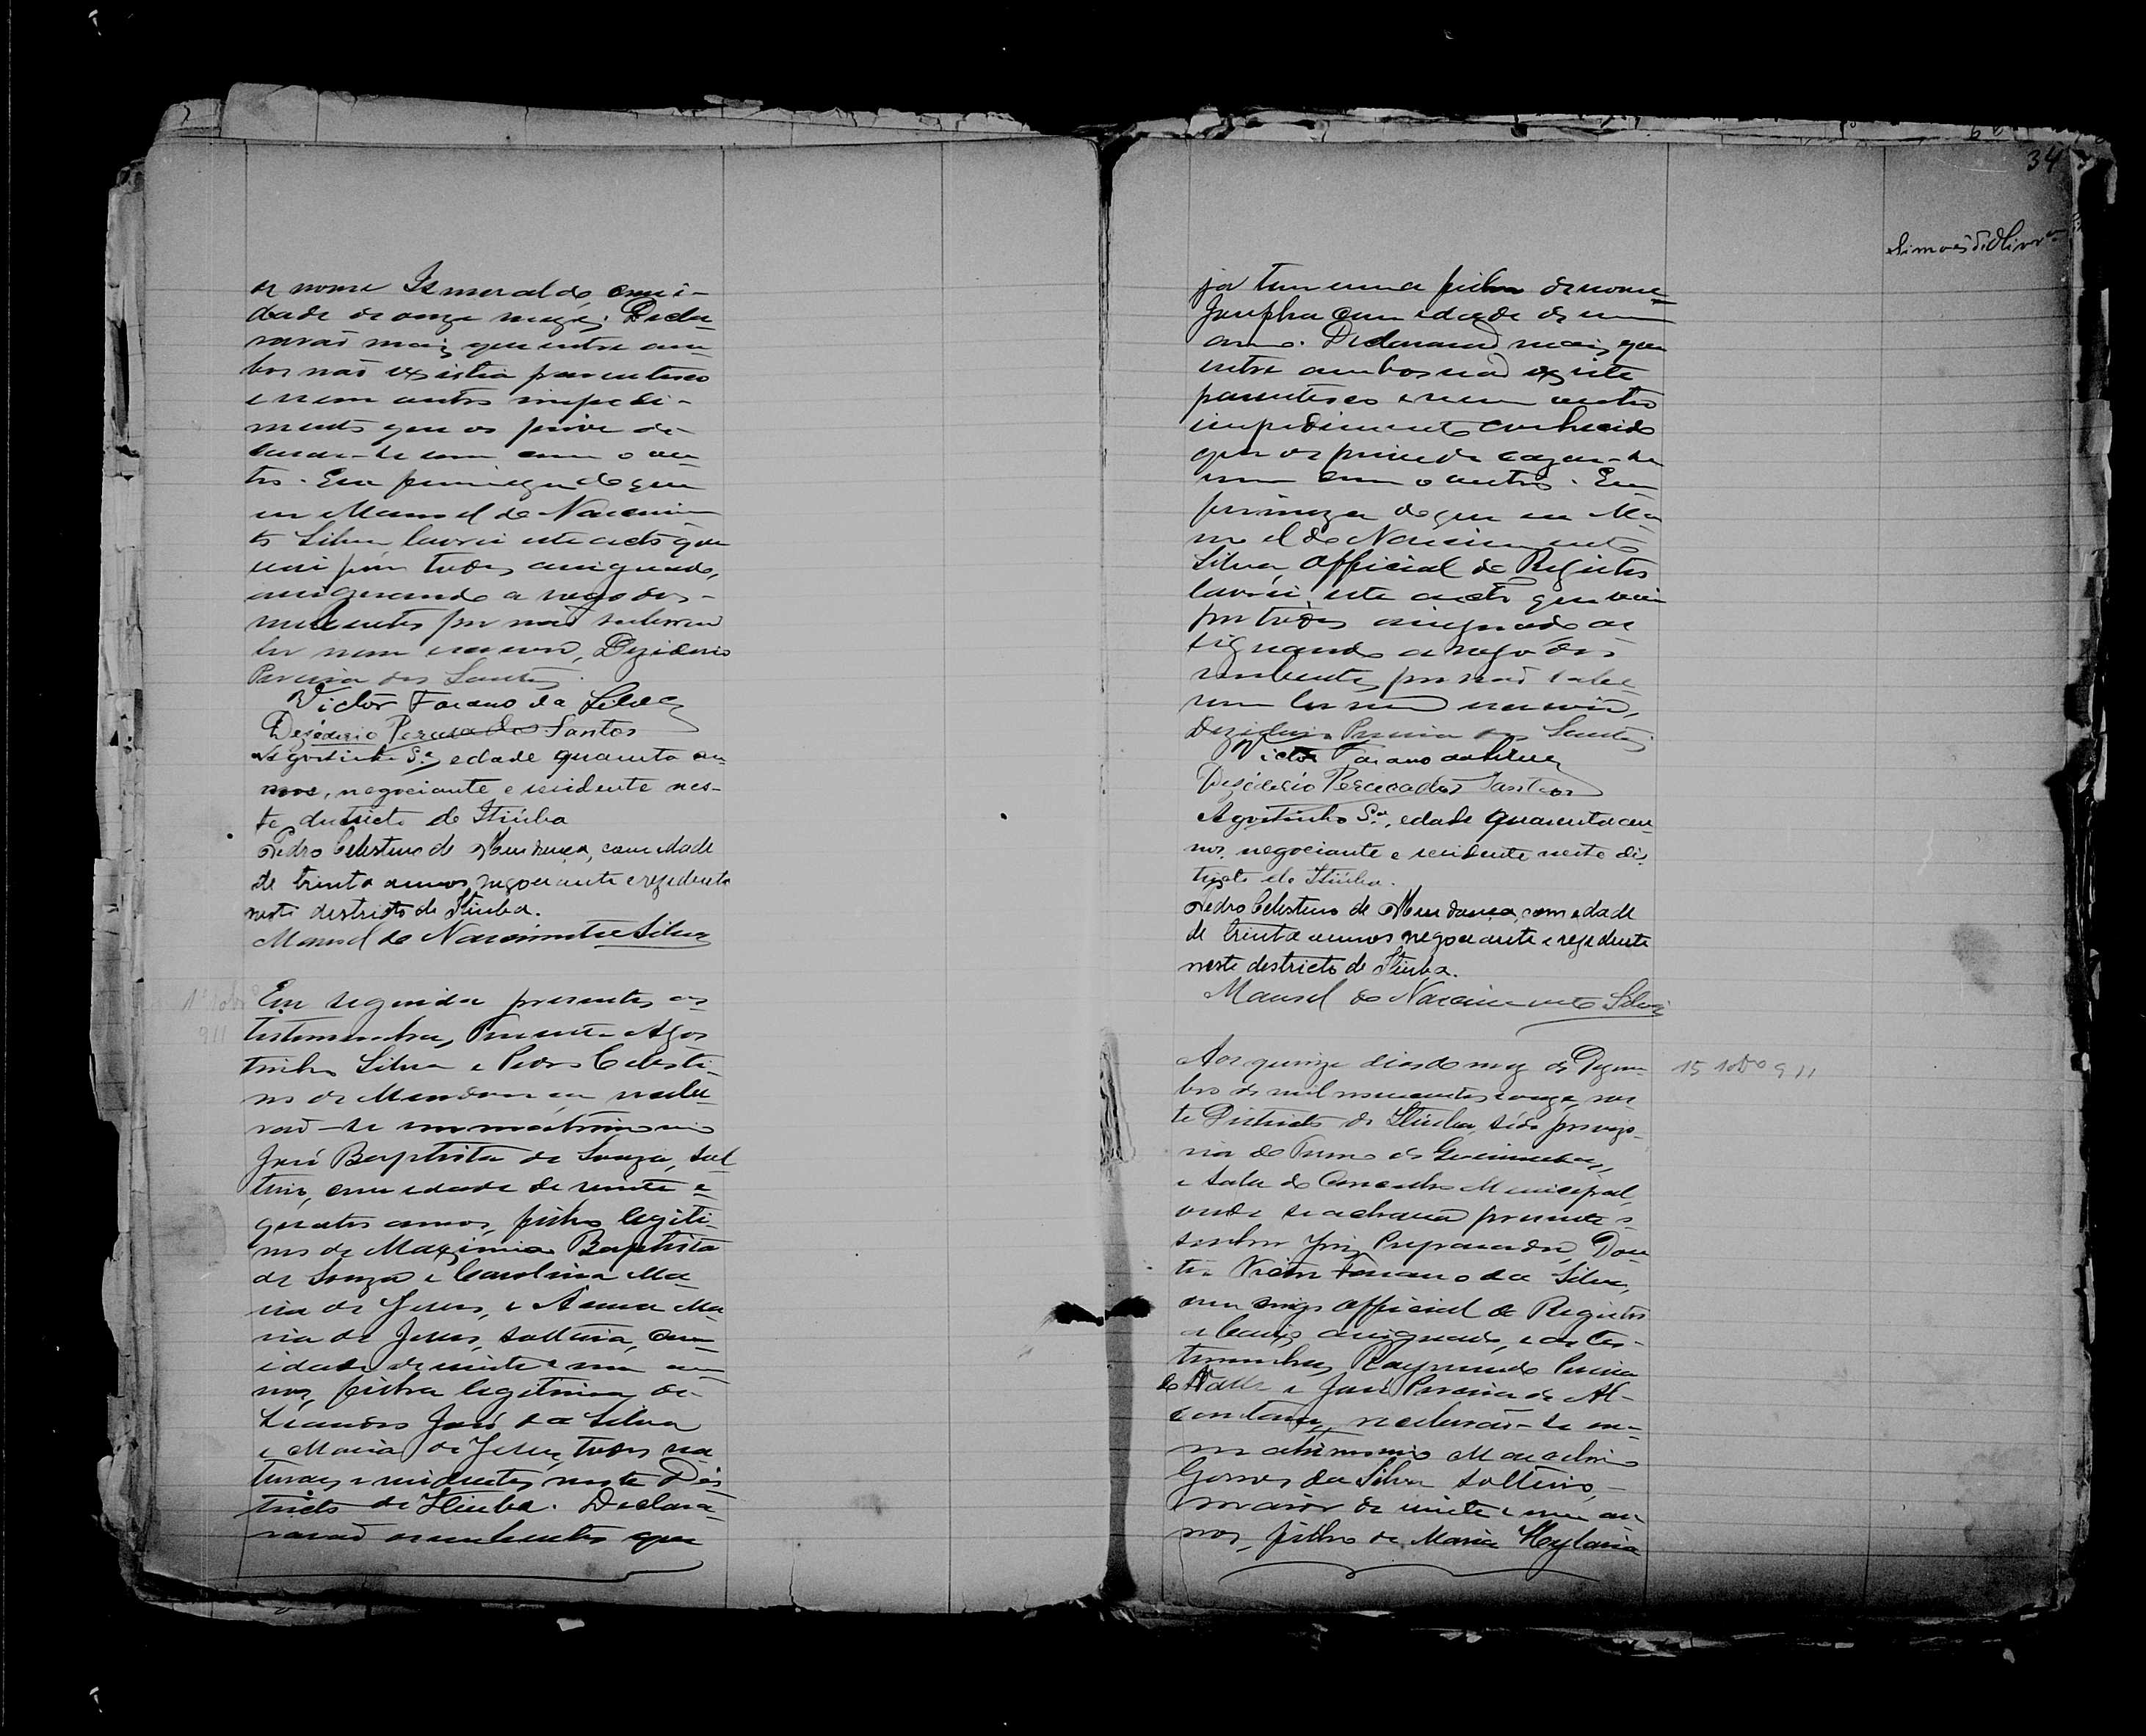 de nome Ismeralda, com i-
dade de onze mezes. Decla-
rarão mais que entre am-
bos não existia parentesco
e nem outro impedi-
mento que os prive de
casar-se um com o ou-
tro. Em firmeza do que
eu Manoel do Nascimen-
to Silva, lavrei este acto que
vai por todos assignado,
assignando a rogo dos
nubentes por não saberem
ler nem escrever, Deziderio
Pereira dos Santos.
Victor Faxano da Silva
Deziderio Pereira dos Santos
Agostinho Sª, edade quarenta an-
nos, negociante e residente nes-
te districto de Itiúba
Pedro Celestino de Mendonça, com edade
de trinta annos, negociante e rezidente
neste destricto de Itiuba.
Manoel do Nascimento Silva
911
Em seguida presentes as
testemunhas, Tenente Agos
tinho Silva e Pedro Celesti-
no de Mendonça, recebe-
rão-se em matrimonio
José Baptista de Souza, sol
teiro, com edade de vinte e
quatro annos, filho legiti-
mo de Maximia Baptista
de Souza e Carolina Ma-
ria de Jesus, e Anna Ma-
ria de Jesus, solteira, com
idade de vinte e um an-
nos, filha legitima de
Leandro José da Silva
e Maria de Jesus, todos na
turaes e residentes neste Dis
tricto de Itiuba. Declara-
rarão os nubentes que
34
Simões de Olivrª
ja tem uma filha de nome
Josepha com edade de um
anno. Declararão mais que
entre ambos não existe
parentesco e nem outro
impedimento conhecido
que os prive de cazar-se
um com o outro. Em
firmeza do que eu Ma-
noel do Nascimento
Silva, Official do Registro
lavrei este acto que vai
por todos assignado as
signando a rogo dos
nubentes por não sabe-
rem ler nem escrever,
Deziderio Pereira dos Santos
Victor Faxano da Silva
Deziderio Pereira dos Santos
Agostinho Sª, edade quarenta an-
nos, negociante e residente neste dis
tricto de Itiúba.
Pedro Celestino de Mendonça, com edade
de trinta annos, negociante e rezidente
neste destricto de Itiuba.
Manoel do Nascimento Silva
15 10bro 911
Aos quinze dias do mez de Dezem-
bro de mil novecentos e onze, nes
te Districto de Itiuba, séde proviso-
ria do Termo de
e sala do Conselho Municipal,
onde se achava presente o
senhor Juiz Preparador, Dou
tor Victor Faxano da Silva,
comigo Official do Registro
abaixo assignado, e as tes-
temunhas, Raymundo Pereira
do Valle e José Pereira de Al-
cantara, receberão-se em
matrimonio Marcolino
Gomes da Silva solteiro,
maior de vinte e um an-
nos, filho de Maria Hylaria